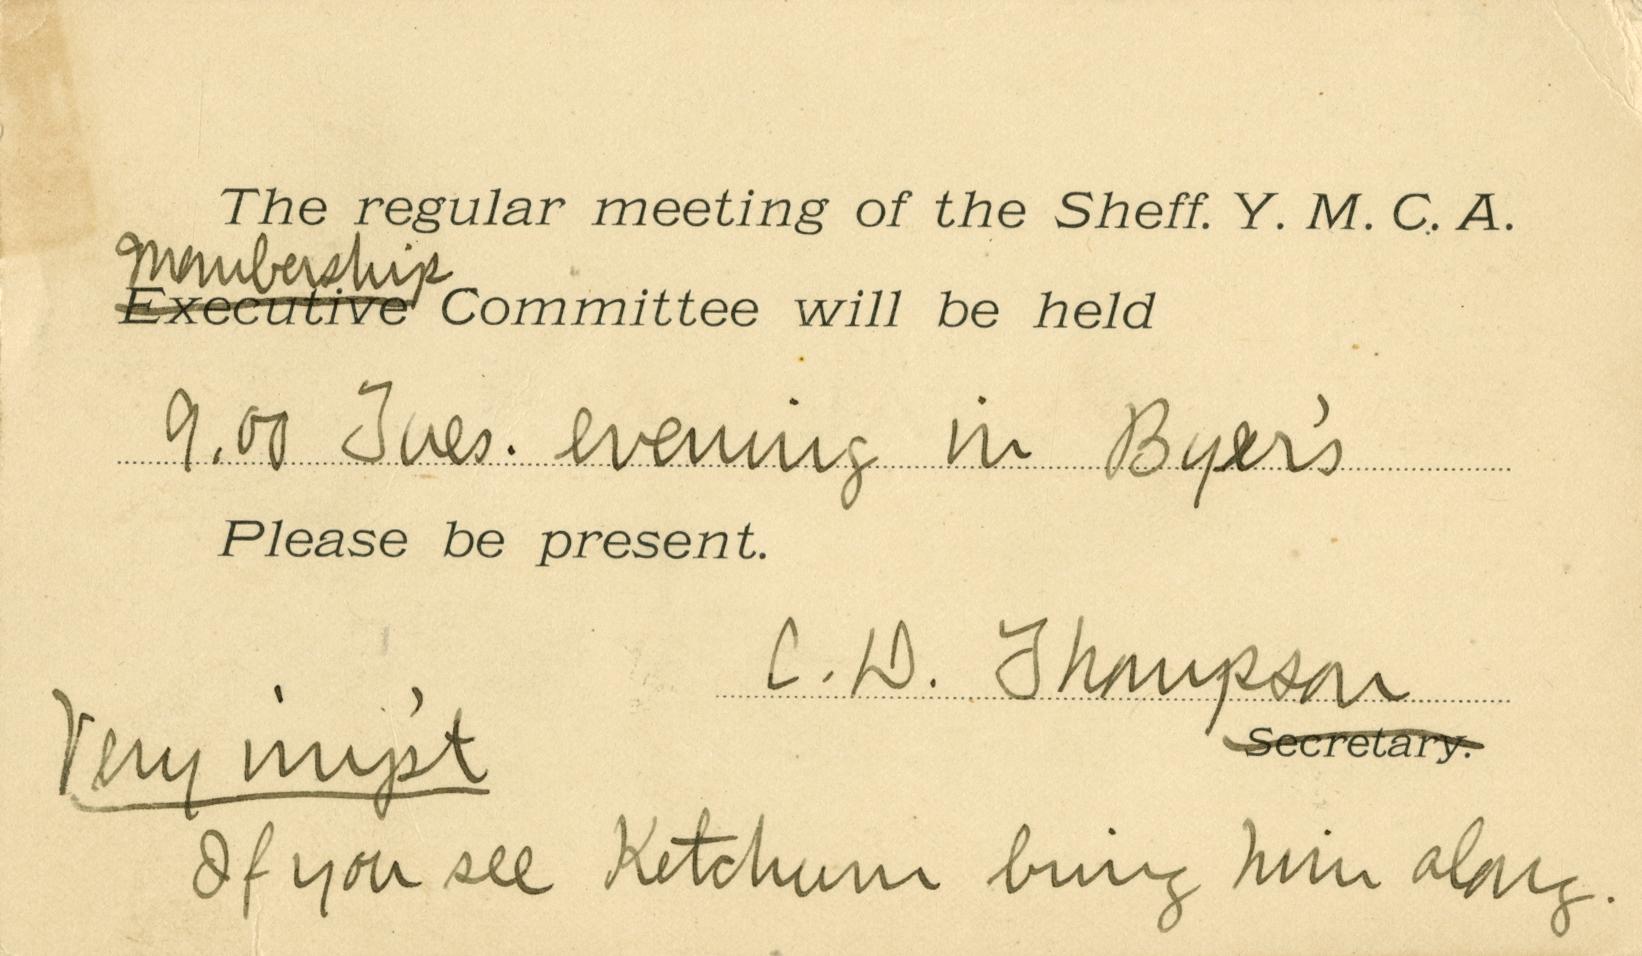 The regular meeting of the Sheff. Y. M. C. A.
Membership
Executive Committee will be held
9.00 Tues. evening in Byer's
Please be present.
C. D. Thompson
Secretary.
Very imp't
If you see Ketchum bring him along.